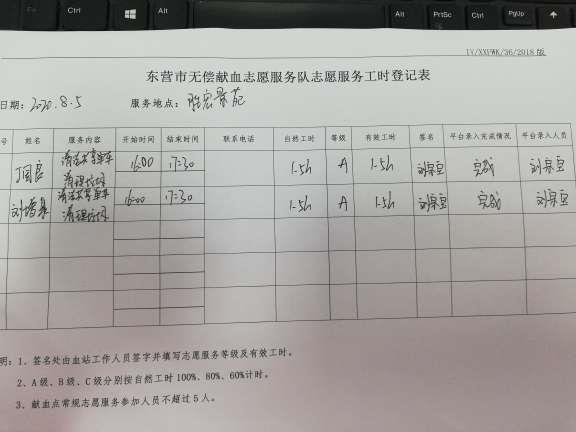 Ctrl
Alt
Alt
PrtSc
Ctrl
PgUp
LY/XXFWK/36/2018版
东营市无偿献血志愿服务队志愿服务工时登记表
日期：2020.8.5 服务地点：
号 姓名 服务内容 开始时间 结束时间 联系电话 自然工时 等级 有效工时 签名 平台录入完成情况 平台录入人员
清洁共享单车 16:00 17:30 1.5h A 1.5h 刘泉豆 完成 刘泉豆
清理垃圾
清洁共享单车 16:00 17:30 1.5h A 1.5h 刘泉豆 完成 刘泉豆
清理垃圾
明：1、签名处由血站工作人员签字并填写志愿服务等级及有效工时。
2、A级、B级、C级分别按自然工时100%、80%、60%计时。
3、献血点常规志愿服务参加人员不超过5人。